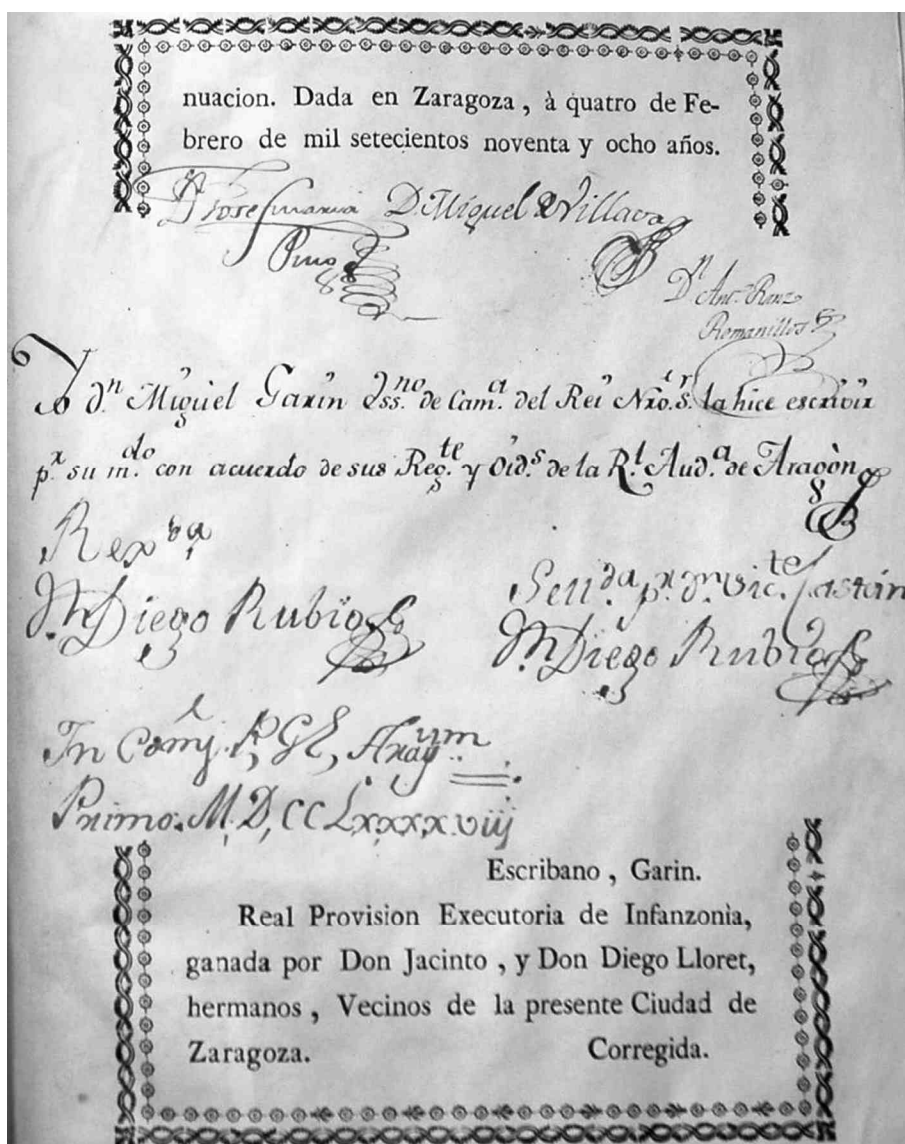 nuacion. Dada en Zaragoza , à quatro de Fe-
brero de mil setecientos noventa y ocho años.
Dn Josef Maria D. Miguel de Villava
Puig
Dn Ant. Ranz
Romanillos
Yo d.n Miguel Garin Ess.no de Cam.a del Rei Nro. S.r la hice escrivir
p.r su m.do con acuerdo de sus Reg.te y Oid.s de la R.l Aud.a de Aragòn
Rex.da
Diego Rubio
Sen.da p.r d.n Vic.te Lastán
Diego Rubio
In Comj.
Primo. M. D, CC Lxxxx.viij
Escribano , Garin.
Real Provision Executoria de Infanzonia,
ganada por Don Jacinto , y Don Diego Lloret,
hermanos , Vecinos de la presente Ciudad de
Zaragoza. Corregida.